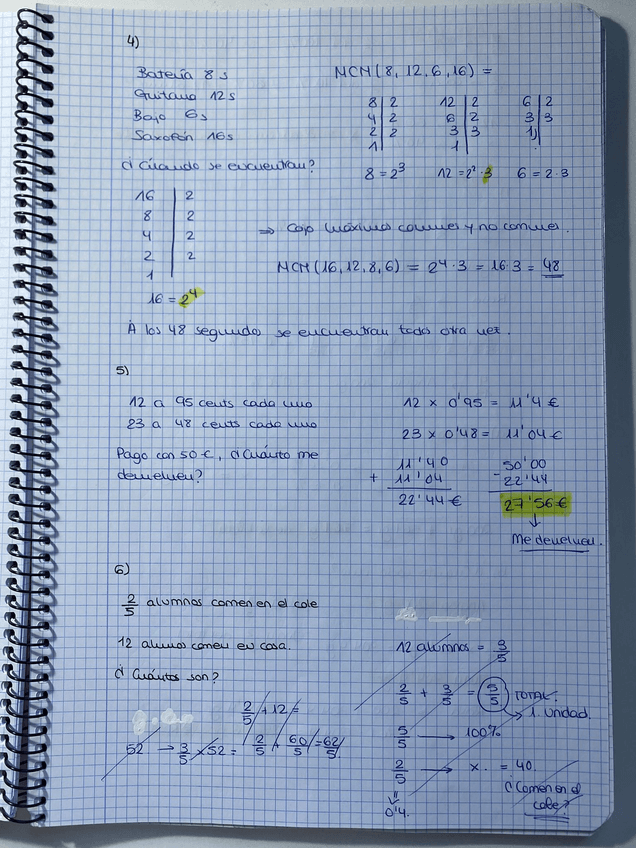 4)
Batería 8 s
Guitarra 12 s
Bajo 6s
Saxofón 16s
¿Cuándo se encuentran?
16 | 2
8 | 2
4 | 2
2 | 2
1
16 = 2⁴
MCM (8, 12, 6, 16) =
8 | 2
4 | 2
2 | 2
1
12 | 2
6 | 2
3 | 3
1
6 | 2
3 | 3
1
8 = 2³ 12 = 2² · 3 6 = 2 · 3
⇒ Cojo máximos comunes y no comunes.
MCM (16, 12, 8, 6) = 2⁴ · 3 = 16 · 3 = 48
A los 48 segundos se encuentran todos otra vez.
5)
12 a 95 cents cada uno
23 a 48 cents cada uno
Pago con 50 €, ¿Cuánto me
devuelven?
12 × 0'95 = 11'4 €
23 × 0'48 = 11'04 €
11'40
+ 11'04
22'44 €
50'00
- 22'44
27'56 €
↓
Me devuelven.
6)
2/5 alumnos comen en el cole
12 alumnos comen en casa.
¿Cuántos son?
2/5 + 12 =
52 → 3/5 × 52 = 2/5 + 60/5 = 62/5
12 alumnos = 3/5
2/5 + 3/5 = 5/5 TOTAL.
→ 1 unidad.
5/5 → 100%
2/5 → x. = 40.
0'4.
¿Comen en el
cole?